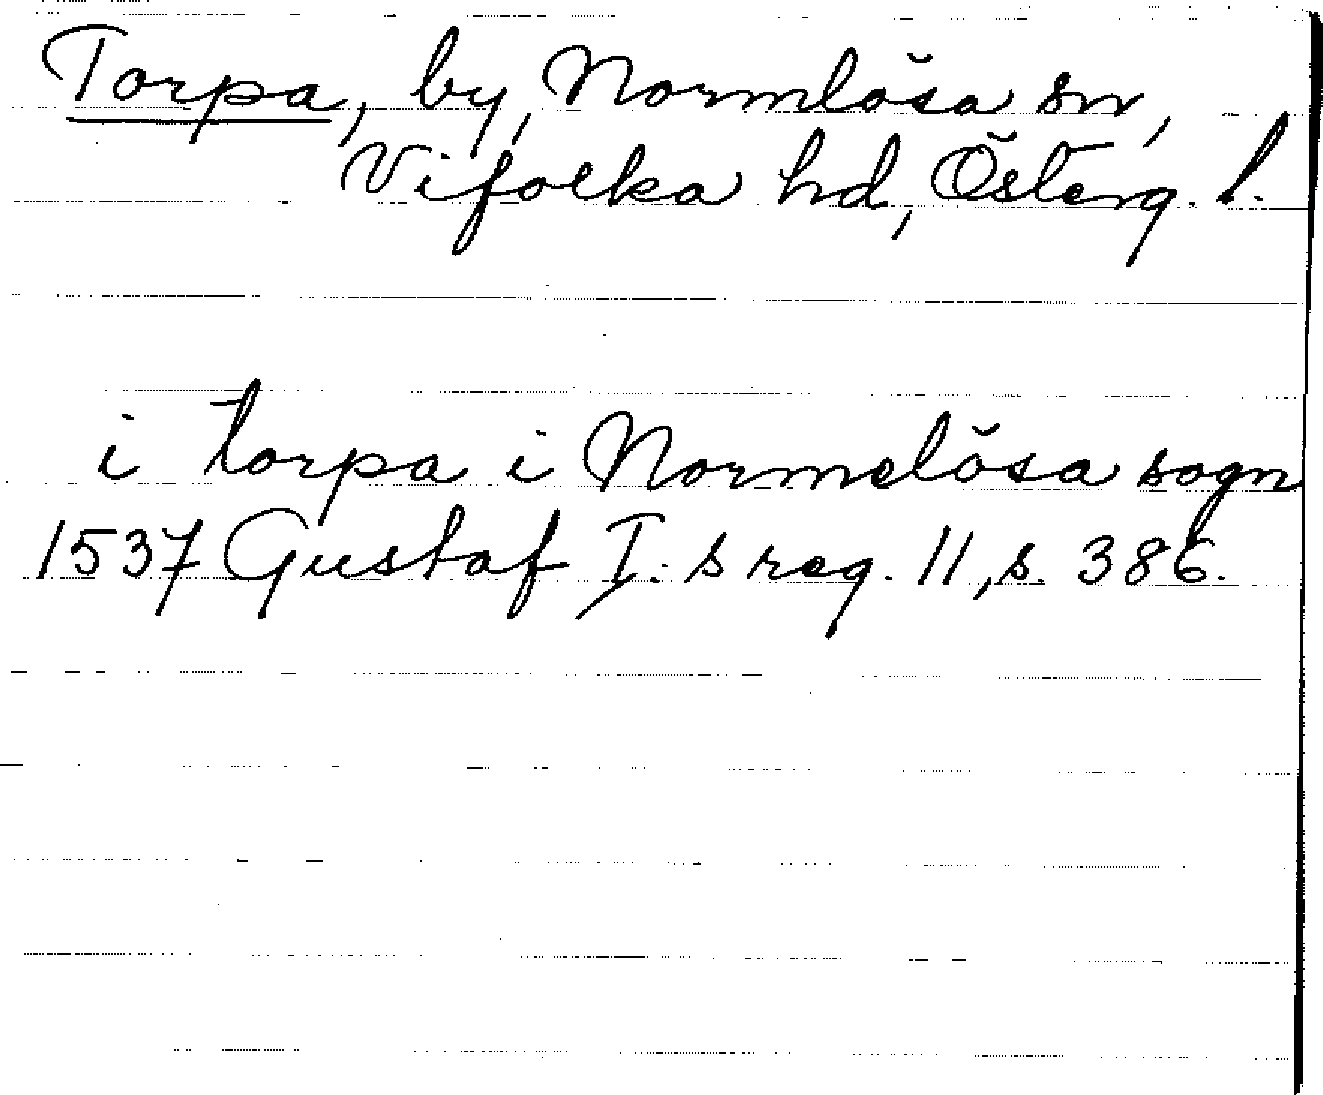 Torpa, by, Normlösa sn,
Vifolka hd, Österg. l.
i torpa i Normelösa sogn
1537 Gustaf I:s reg. 11, s. 386.